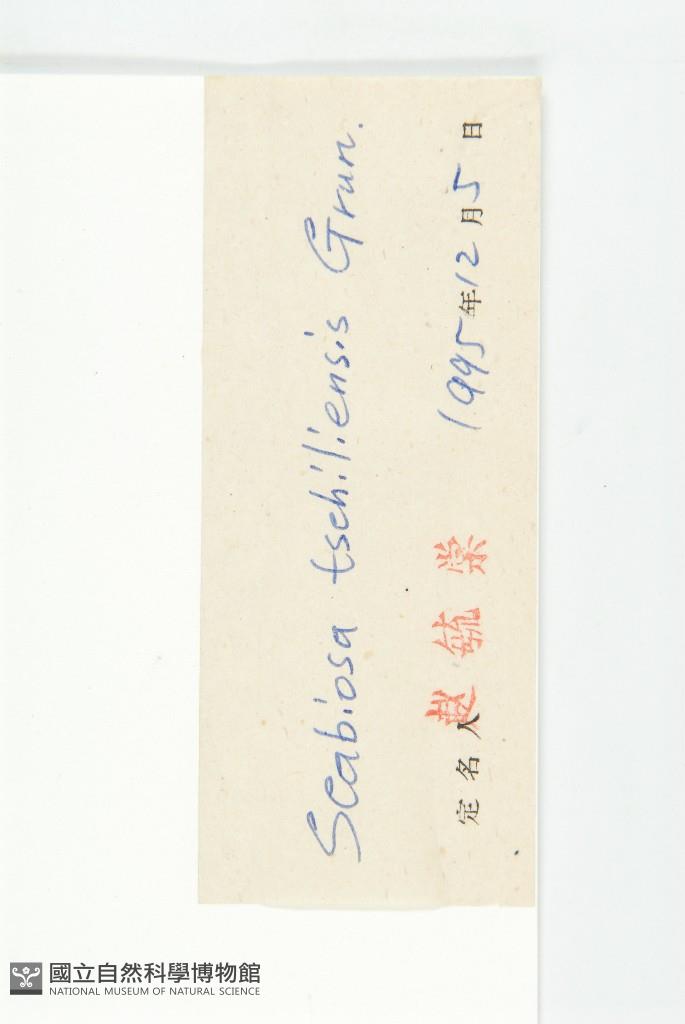 Scabiosa tschiliensis Grun.
定名人 赵毓棠 1995年12月5日
國立自然科學博物館
NATIONAL MUSEUM OF NATURAL SCIENCE